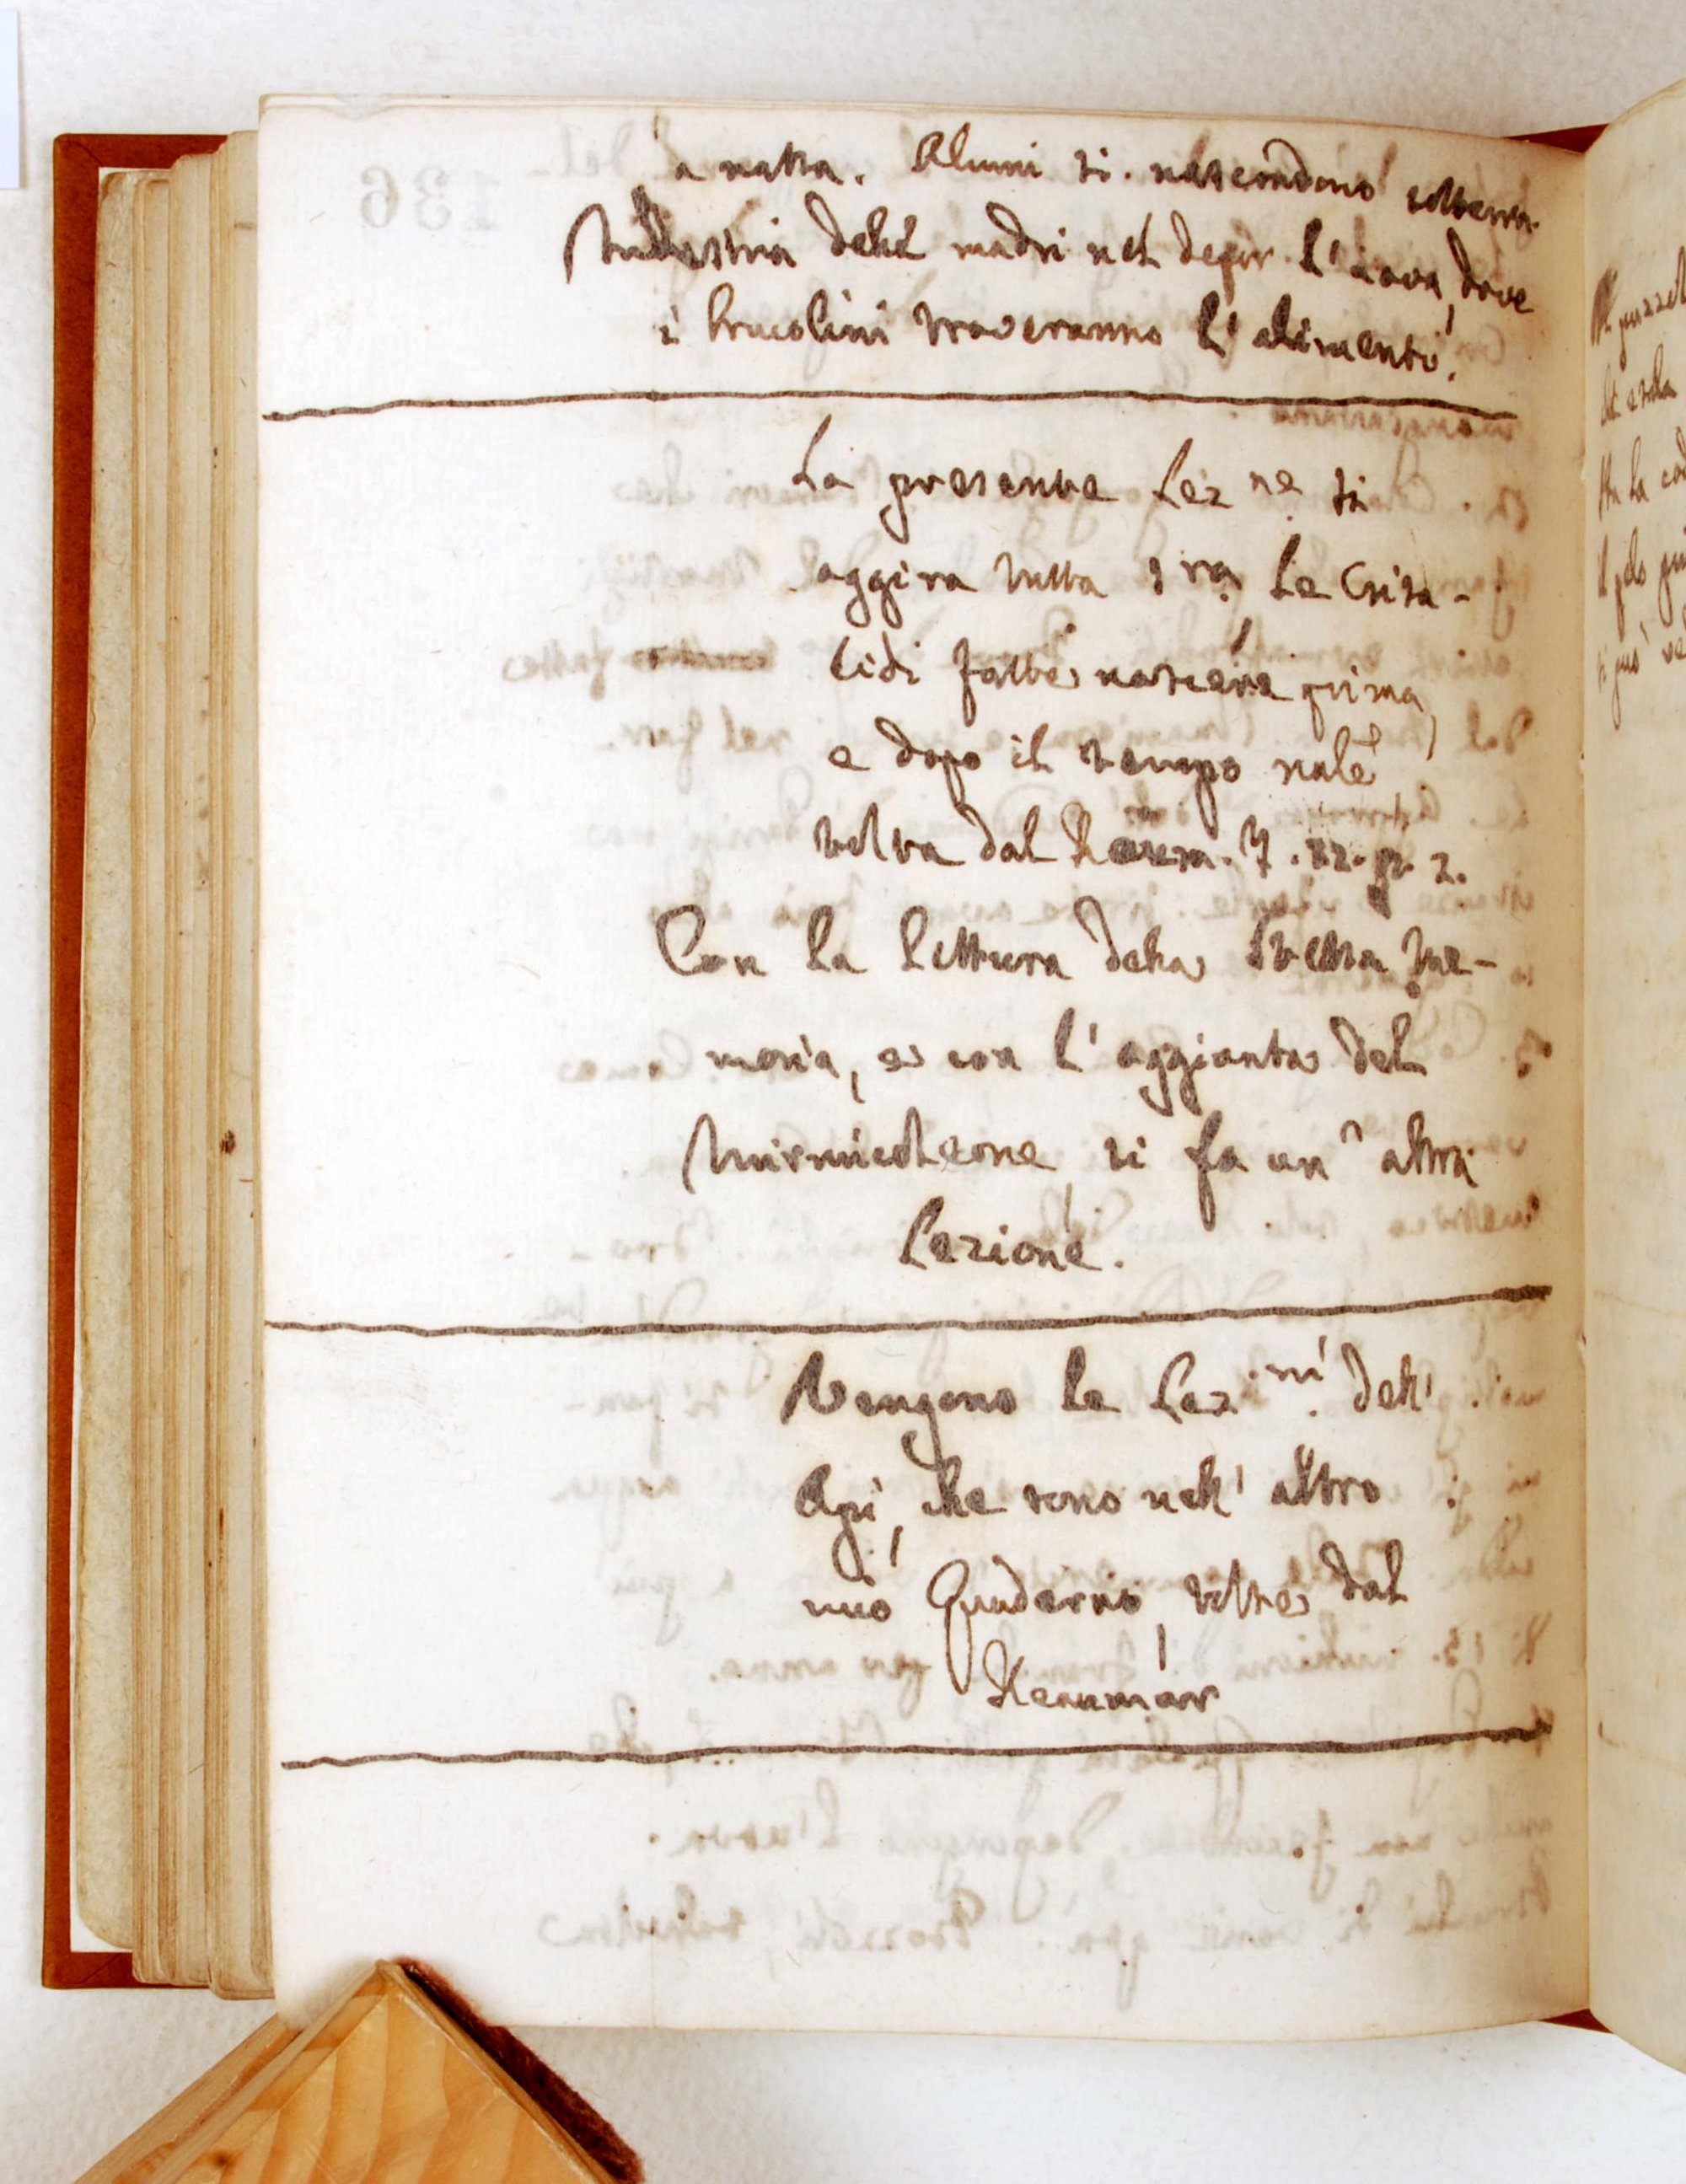 a nassa. Alcuni si nascondono sotterra.
Industria delle madri nel depor l'uova, dove
i brucolini troveranno l'alimento.
La presente Lez.ne si
aggira tutta sra le Crisa-
lidi fatte nascere prima,
e dopo il tempo
tolta dal Reaum. T. 2.
Con la lettura della stessa Me-
moria, e con l'aggiunta del
Mirmicoleone, si fa un'altra
Lezione.
Vengono le Lez.ni dell'
Api, che sono nell'altro
mio Quaderno, tolte dal
Reaumur
136